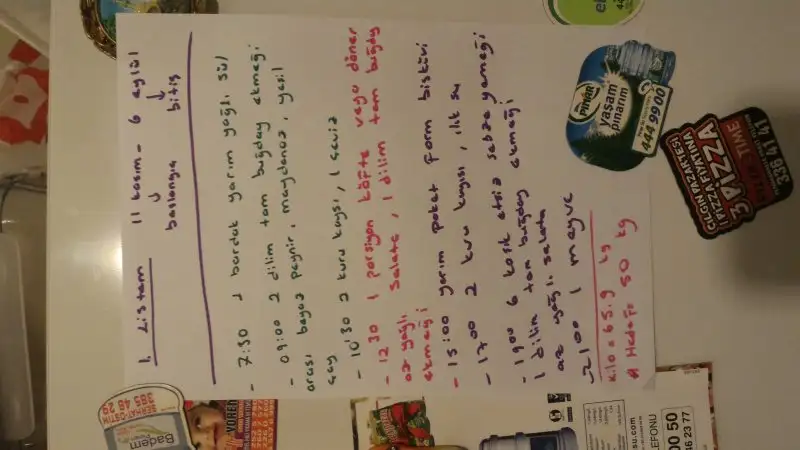 1. Listem 11 kasım - 6 eylül
başlangıç bitiş
- 7:30 1 bardak yarım yağlı süt
- 09:00 2 dilim tam buğday ekmeği
arası beyaz peynir, maydanoz, yeşil
çay
- 10:30 2 kuru kayısı, 1 ceviz
- 12 30 1 porsiyon köfte veya döner
az yağlı salata, 1 dilim tam buğday
ekmeği
- 15:00 yarım paket form bisküvi
- 17 00 2 kuru kayısı, ılık su
- 19 00 6 kaşık etsiz sebze yemeği
1 dilim tam buğday ekmeği
az yağlı salata
- 21 00 1 meyve
Kilo = 65.9 kg
Hedef: 50 kg
PINAR
yaşam
pınarım
444 99 00
ÇILGIN PAZARTESİ
1 PİZZA FİYATINA
3 PİZZA
TIME
336 41 41
BERHAT-OSTİM
385 46 29
Badem
YÖREM
su.com
00 50
46 23 77